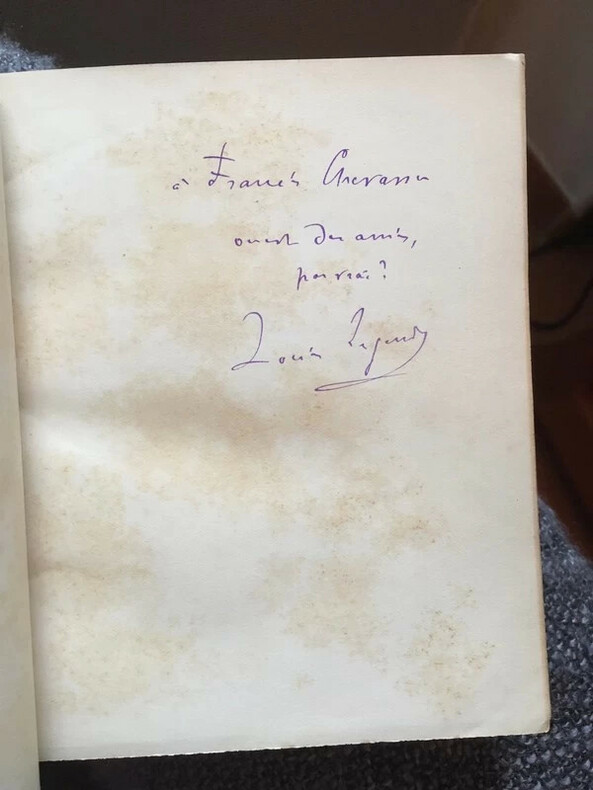 à Francis Chevassu
on est des amis,
pas vrai ?
Louis Legendre